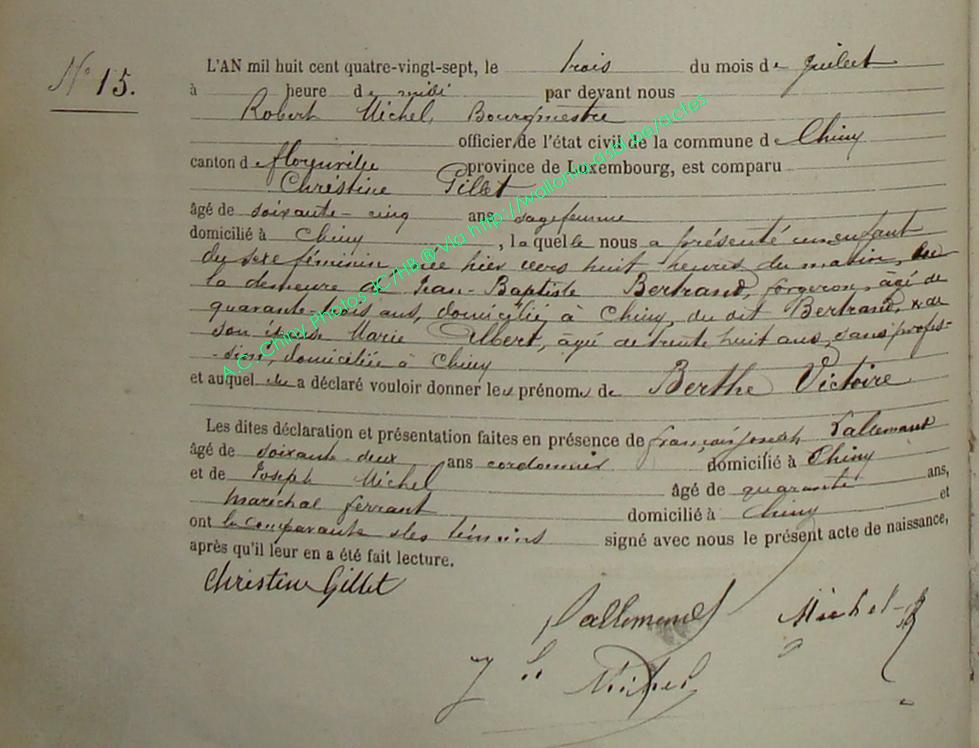 N° 15.
L'AN mil huit cent quatre-vingt-sept, le trois du mois de juillet
à heure de midi par devant nous
Robert Michel, Bourgmestre
officier de l'état civil de la commune d e Chiny
canton d e florenville province de Luxembourg, est comparu
Christine Gillet
âgé de soixante-cinq ans sagefemme
domicilié à Chiny, laquelle nous a présenté un enfant
du sexe féminin, née hier vers huit heures du matin, en
la demeure de Jean-Baptiste Bertrand, forgeron, âgé de
quarante-trois ans, domicilié à Chiny, du dit Bertrand, & de
son épouse Marie Albert, âgée de trente huit ans, sans profes-
-sion, domiciliée à Chiny
et auquel elle a déclaré vouloir donner les prénoms de Berthe Victoire
Les dites déclaration et présentation faites en présence de françois joseph Lallemant
âgé de soixante-deux ans cordonnier domicilié à Chiny
et de Joseph Michel âgé de quarante ans,
maréchal ferrant domicilié à Chiny et
ont la comparante & les témoins signé avec nous le présent acte de naissance,
après qu'il leur en a été fait lecture.
Christine Gillet
Lallemend Michel-R
J h Michel
A.C. Chiny Photos JC/HB ® Via http://wallonia-asbl.be/actes